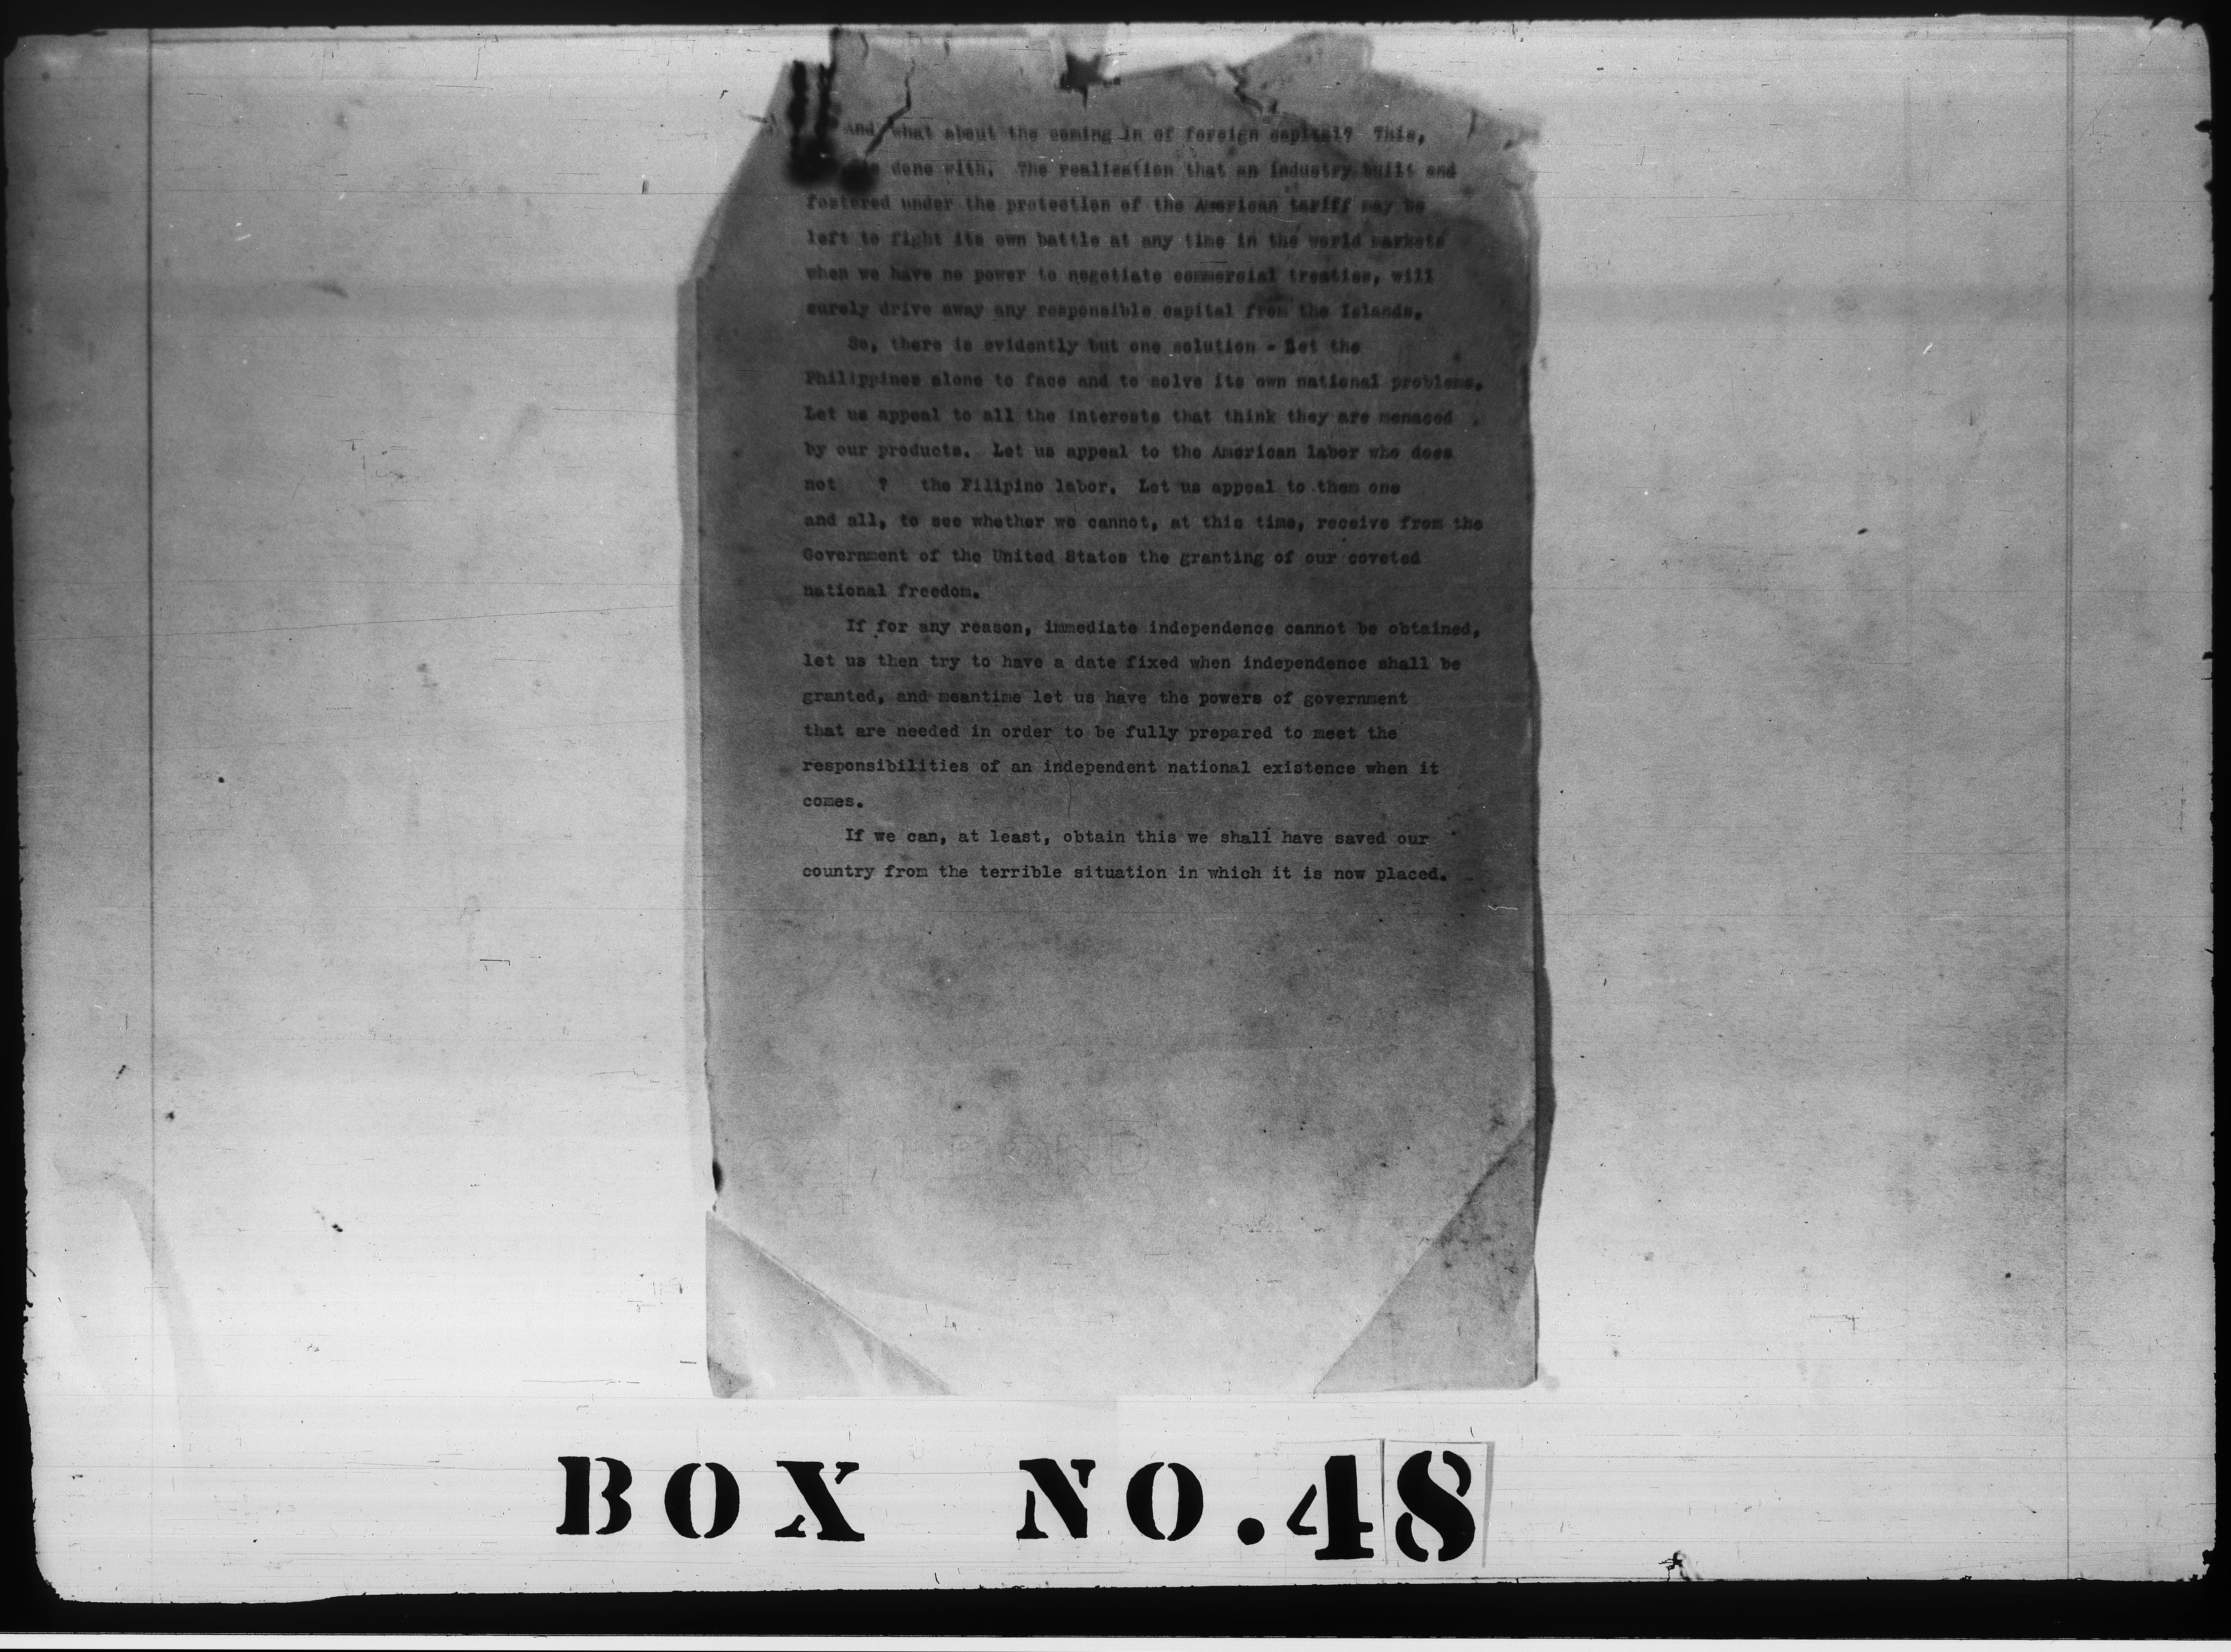 And what about the coming in of foreign capital? This,
done with. The realization that an industry built and
fostered under the protection of the American tariff may be
left to fight its own battle at any time in the world markets
when we have no power to negotiate commercial treaties, will
surely drive away any responsible capital from the Islands.
So, there is evidently but one solution - Let the
Philippines alone to face and to solve its own national problems.
Let us appeal to all the interests that think they are menaced
by our products. Let us appeal to the American labor who does
not ? the Filipino labor. Let us appeal to them one
and all, to see whether we cannot, at this time, receive from the
Government of the United States the granting of our coveted
national freedom.
If for any reason, immediate independence cannot be obtained,
let us then try to have a date fixed when independence shall be
granted, and meantime let us have the powers of government
that are needed in order to be fully prepared to meet the
responsibilities of an independent national existence when it
comes.
If we can, at least, obtain this we shall have saved our
country from the terrible situation in which it is now placed.
BOND
BOX NO. 48